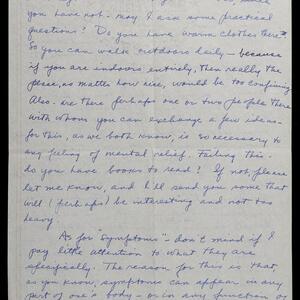 you have not - may I ask some practical
questions? Do you have warm clothes there
so you can walk outdoors daily - because
if you are indoors entirely, then really the
place, no matter how nice, would be too confining.
Also - are there perhaps one or two people there
with whom you can exchange a few ideas -
for this, as we both know, is so necessary to
any feeling of mental relief. Failing this -
do you have books to read? If not, please
let me know, and I'll send you some that
will (perhaps) be interesting and not too
heavy.
As for "symptoms" - don't mind if I
pay little attention to what they are
specifically. The reason for this is that,
as you know, symptoms can appear in any
part of one's body - or in any function or